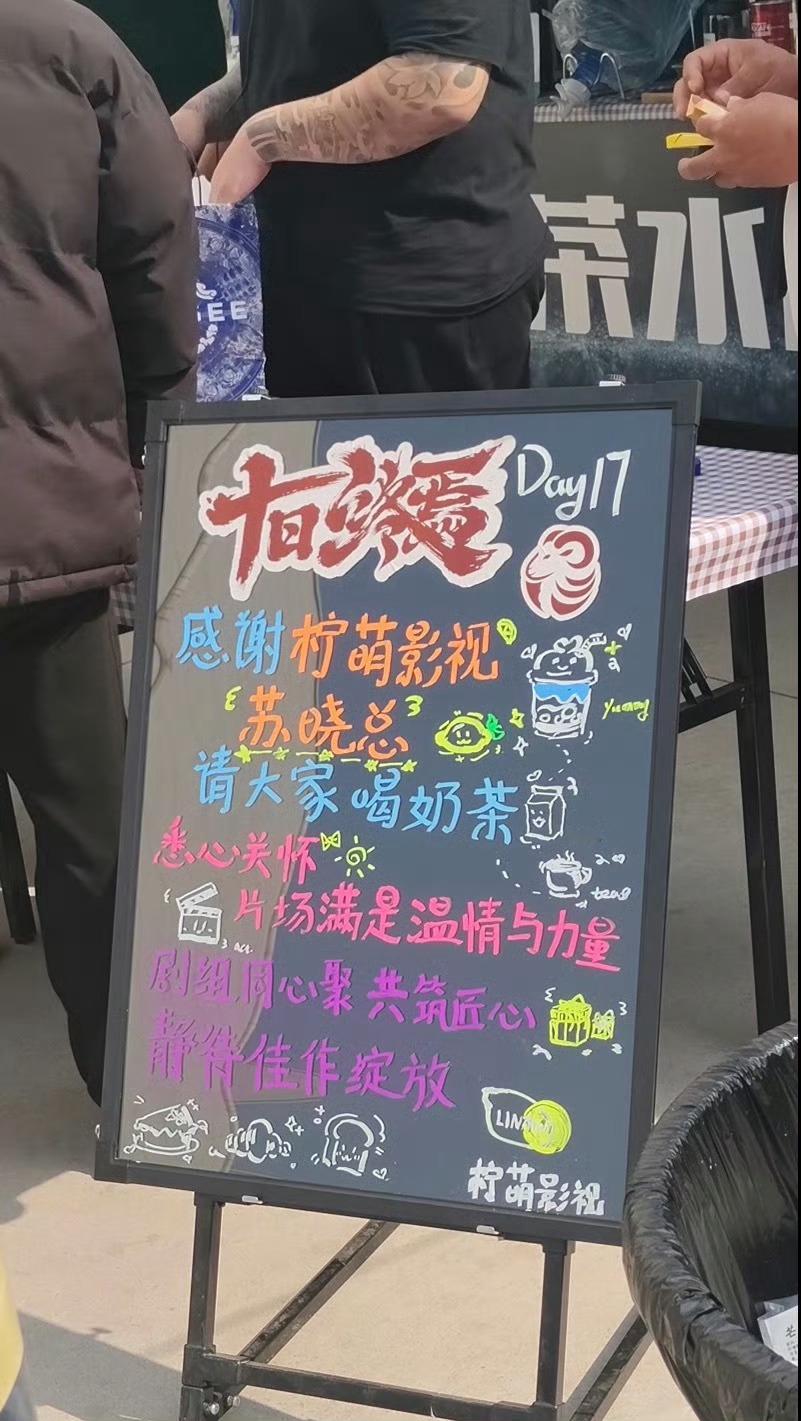 茶水
十日终焉 Day17
感谢柠萌影视
苏晓总
请大家喝奶茶
悉心关怀
片场满是温情与力量
剧组同心聚 共筑匠心
静待佳作绽放
柠萌影视